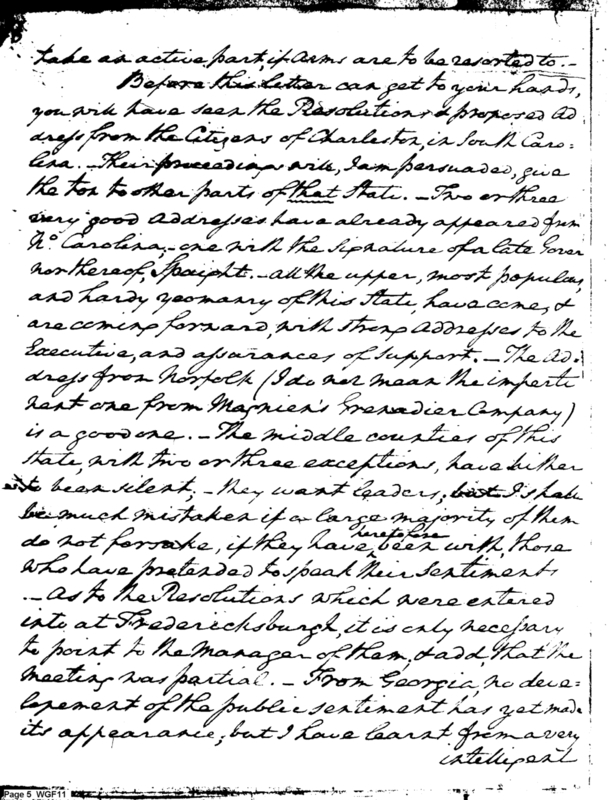 take an active part, if Arms are to be resorted to.—
Before this letter can get to your hands,
you will have seen the Resolutions & proposed Ad
dress from the Citizens of Charleston, in South Caro=
lina.—Their proceedings will, I am persuaded, give
the ton to other parts of that State.—Two or three
very good Addresses have already appeared from
No. Carolina,—one with the signature of a late Gover
nor thereof, Spaight.—all the upper, most populous,
and hardy yeomanry of this State, have come, &
are coming forward, with strong Addresses to the
Executive, and assurances of support.—The Ad-
dress from Norfolk (I do not mean the imperti
nent one from Magnien's Grenadier Company)
is a good one.—The middle counties of this
State, with two or three exceptions, have hither
to been silent;—they want leaders; but I shall
be much mistaken if a large majority of them
do not forsake, if they have heretofore been with, those
who have pretended to speak their sentiments
.—As to the Resolutions which were entered
into at Fredericksburgh, it is only necessary
to point to the manager of them; & add, that the
meeting was partial.—From Georgia, no deve=
lopement of the public sentiment has yet made
its appearance; but I have learnt from a very
intelligent
Page 5 WGF11